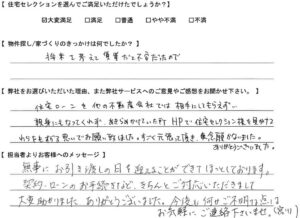 【 住宅セレクションを選んでご満足いただけたでしょうか？ 】
☑大変満足　□満足　□普通　□やや不満　□不満
【 物件探し/家づくりのきっかけは何でしたか？ 】
将来を考え 賃貸だと不安だったので
【 弊社をお選びいただいた理由、また弊社サービスへのご意見やご感想をお聞かせ下さい。 】
住宅ローンを他の不動産会社では相手にしてもらえず、
相手にもなってくれず、あきらめかけていた所 HPで住宅セレクション様を見かけ
わらをもつかむ思いでお願い致しました。すごく元気で頂き、夢が叶いました。
ありがとうございました。
【 担当者よりお客様へのメッセージ 】
無事にお引き渡しの日を迎えることができてほっとしております。
契約・ローンのお手続きなど、きちんとご対応いただきまして
大変助かりました。ありがとうございました。今後も何かご不明な点は
お気軽にご連絡下さいませ。